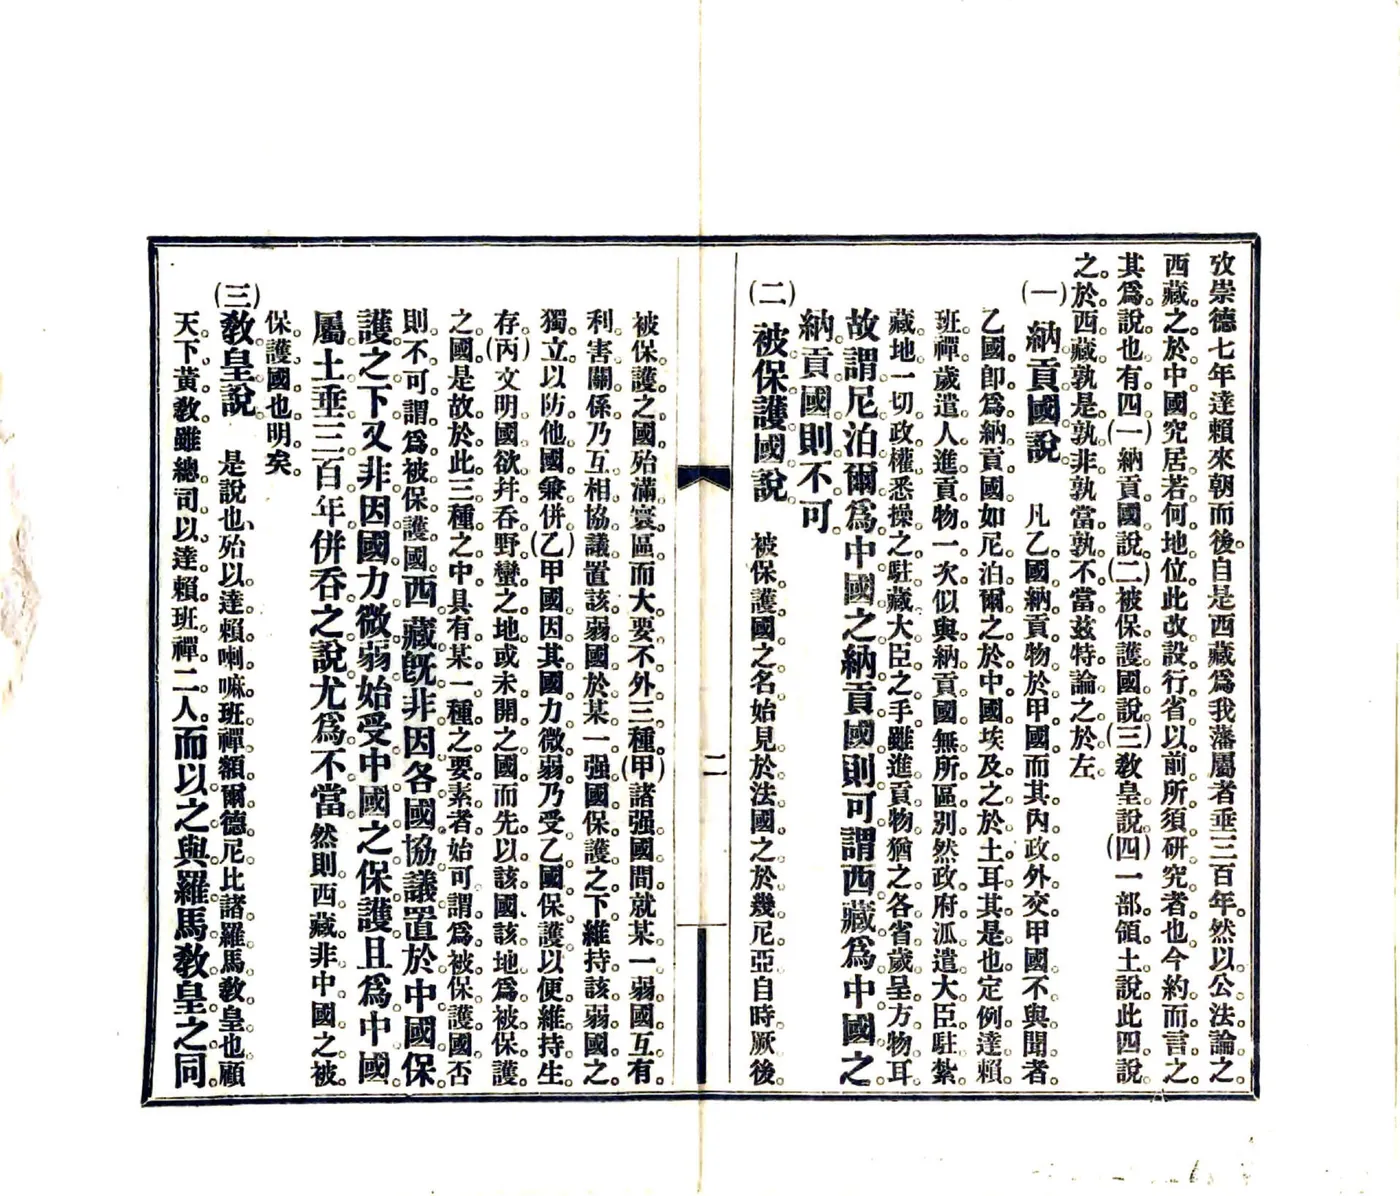 攷崇德七年達賴來朝而後。自是西藏爲我藩屬者。垂三百年。然以公法論之。
西藏之於中國。究居若何地位。此改設行省以前。所須研究者也。今約而言之。
其爲說也有四。(一)納貢國說。(二)被保護國說。(三)敎皇說。(四)一部領土說。此四說
之於西藏。孰是孰非。孰當孰不當。茲特論之於左。
(一)納貢國說 凡乙國納貢物於甲國。而其內政外交。甲國不與聞者。
乙國卽爲納貢國。如尼泊爾之於中國。埃及之於土耳其是也。定例達賴
班禪。歲遣人進貢物一次。似與納貢國無所區別。然政府派遣大臣駐紮
藏地。一切政權。悉操之駐藏大臣之手。雖進貢物。猶之各省歲呈方物耳。
故謂尼泊爾爲中國之納貢國則可。謂西藏爲中國之
納貢國則不可。
(二)被保護國說 被保護國之名。始見於法國之於幾尼亞。自時厥後。
二
被保護之國。殆滿寰區。而大要不外三種。(甲)諸强國間就某一弱國互有
利害關係。乃互相協議。置該弱國於某一强國保護之下。維持該弱國之
獨立。以防他國兼併。(乙)甲國因其國力微弱。乃受乙國保護。以便維持生
存。(丙)文明國欲幷吞野蠻之地。或未開之國。而先以該國該地爲被保護
之國。是故於此三種之中。具有某一種之要素者。始可謂爲被保護國。否
則不可謂爲被保護國。西藏旣非因各國協議置於中國保
護之下。又非因國力微弱始受中國之保護。且爲中國
屬土垂三百年。併吞之說。尤爲不當。然則西藏非中國之被
保護國也明矣。
(三)敎皇說 是說也、殆以達賴喇嘛班禪額爾德尼比諸羅馬敎皇也。顧
天下黃敎。雖總司以達賴班禪二人。而以之與羅馬敎皇之同